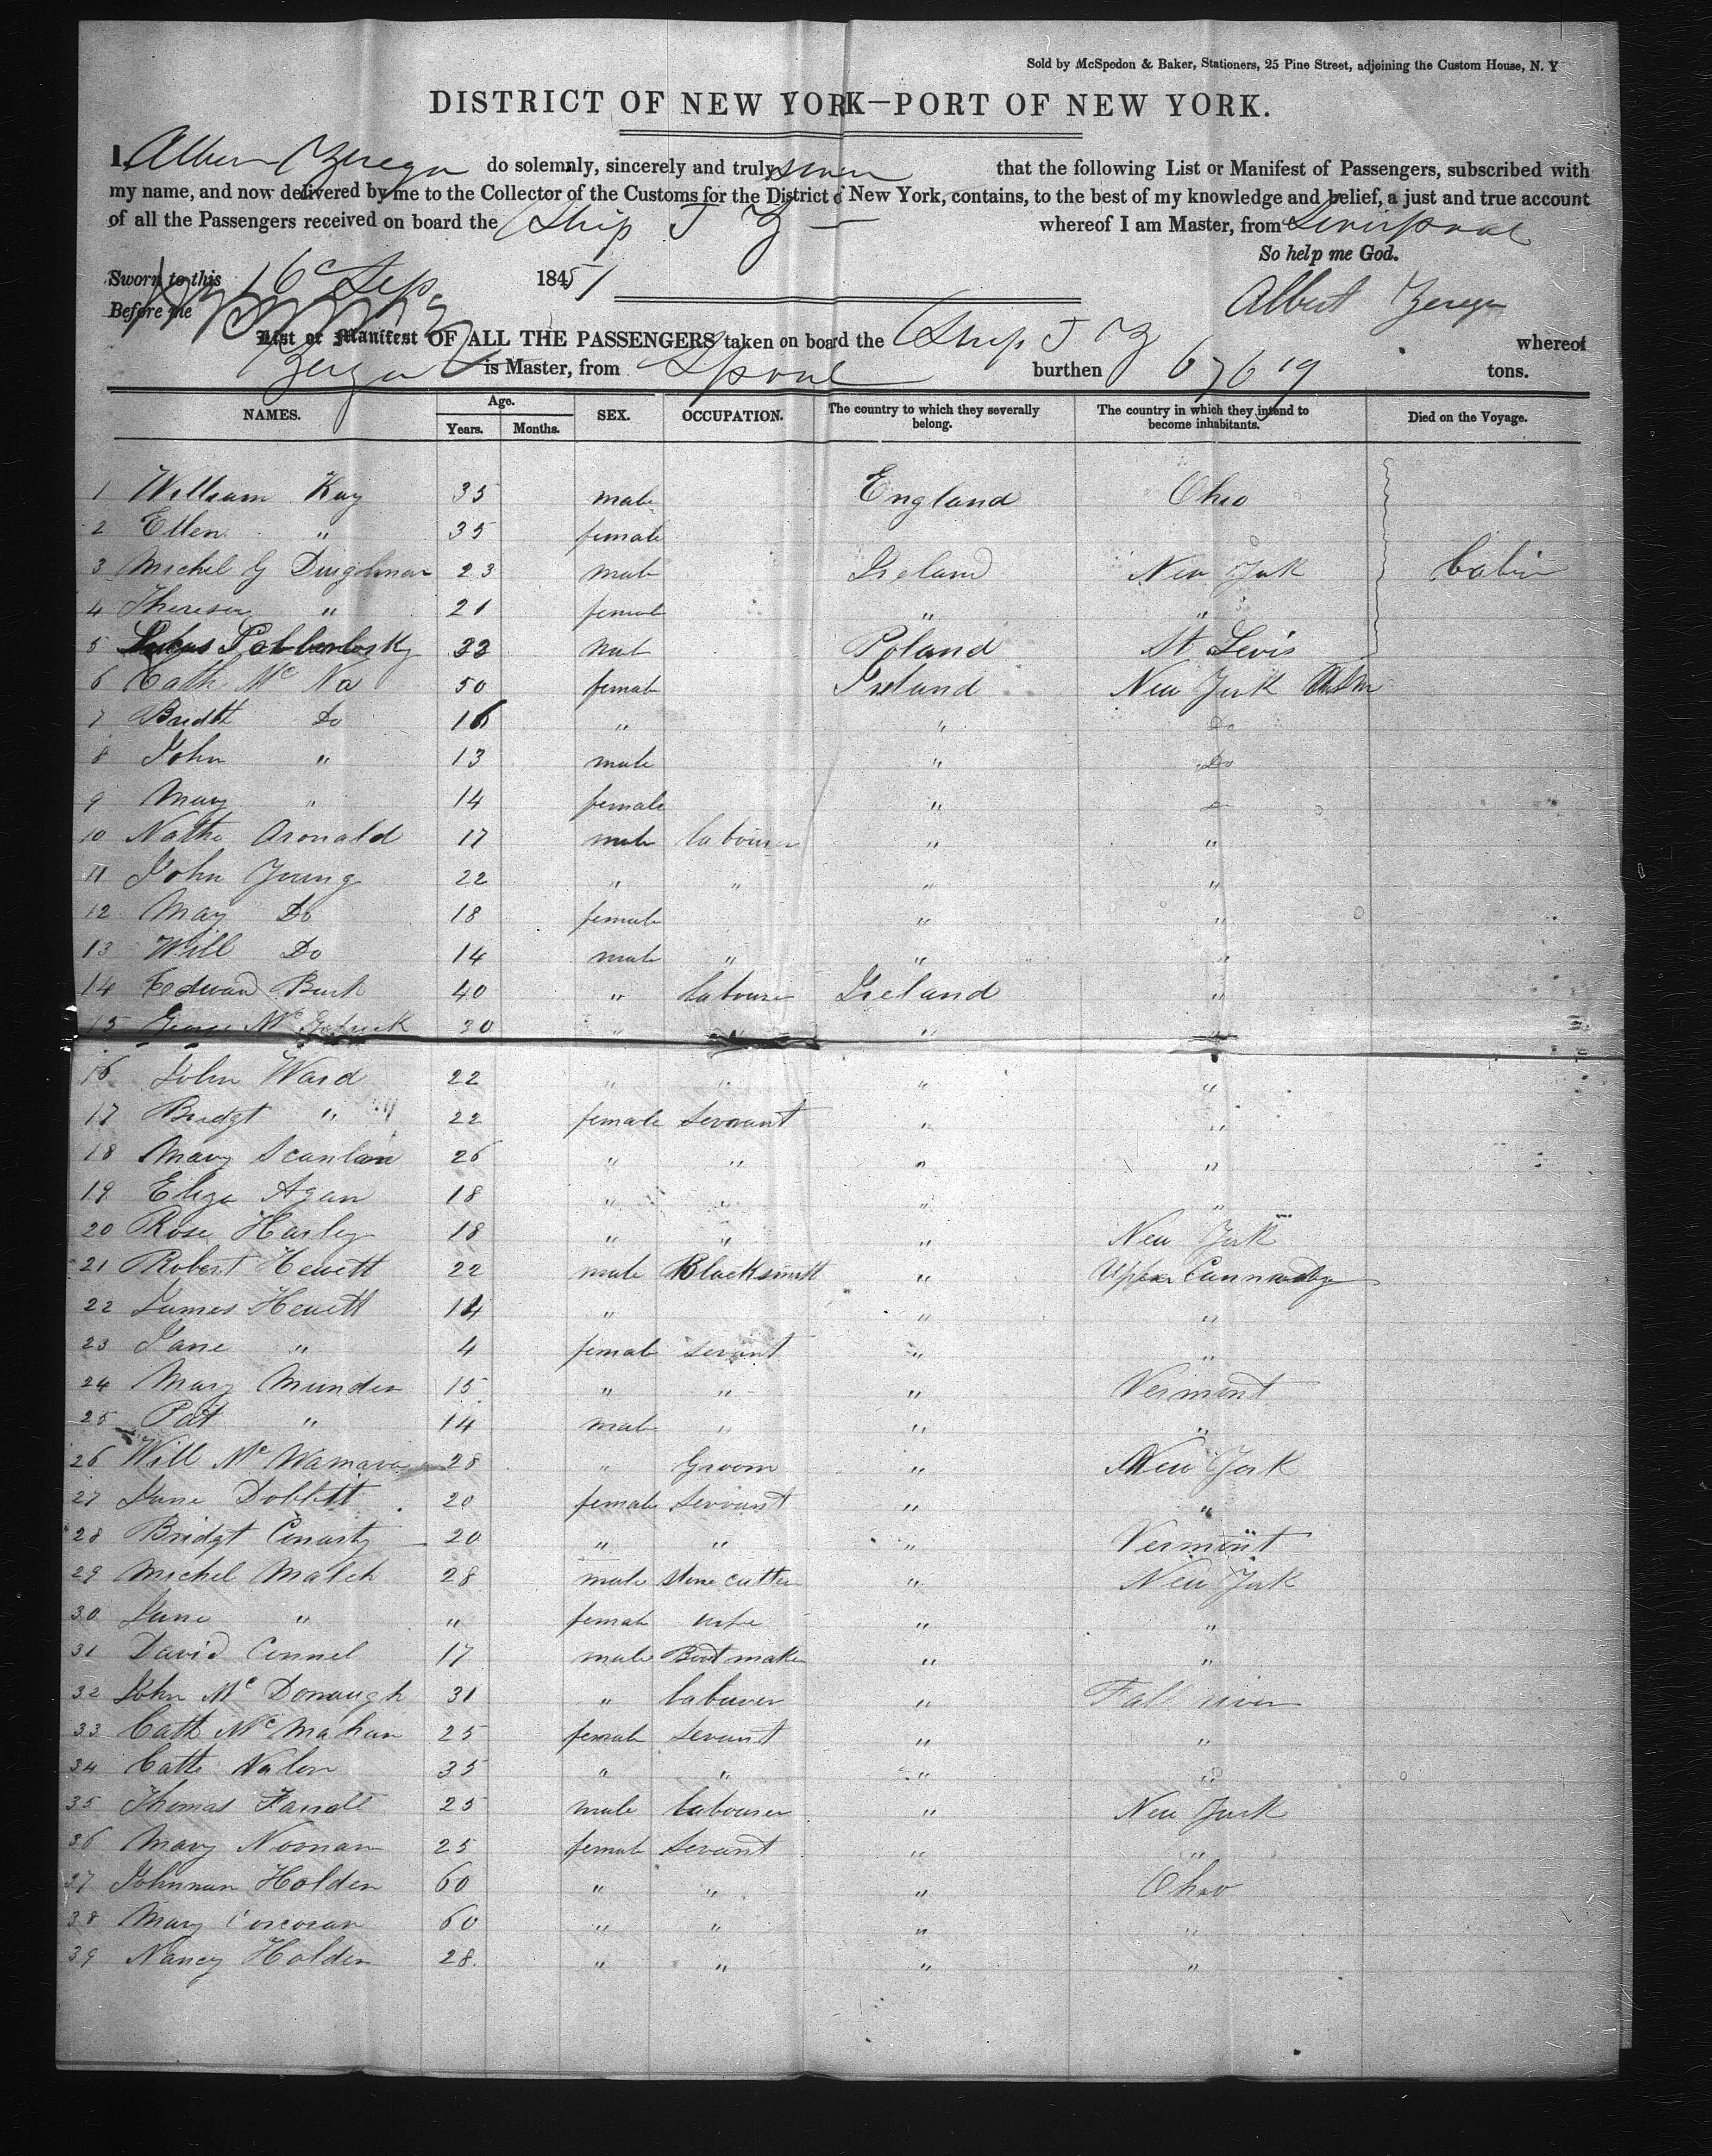 Sold by McSpedon & Baker, Stationers, 25 Pine Street, adjoining the Custom House, N. Y
DISTRICT OF NEW YORK—PORT OF NEW YORK.
I, Albert Zerega do solemnly, sincerely and truly swear that the following List or Manifest of Passengers, subscribed with
my name, and now delivered by me to the Collector of the Customs for the District of New York, contains, to the best of my knowledge and belief, a just and true account
of all the Passengers received on board the Ship J Z whereof I am Master, from Liverpool
So help me God.
Sworn to this 16 Sep 1851
Albert Zerega
Before me
List or Manifest OF ALL THE PASSENGERS taken on board the Ship J Z whereof
Zerega is Master, from Lpool burthen 676 19 tons.
NAMES. Age. Years. Months. SEX. OCCUPATION. The country to which they severally belong. The country in which they intend to become inhabitants. Died on the Voyage.
1 William Kay 35 male England Ohio
2 Ellen " 35 female
3 Michel G 23 male Ireland New York Cabin
4 Theresa " 21 female " "
5 33 male Poland St Levis
6 Cath Mc Na 50 female Ireland New York
7 Bridt Do 16 " " Do
8 John " 13 male " Do
9 Mary " 14 female " Do
10 Nathe Aronald 17 male labourer " "
11 John Young 22 " " " "
12 May Do 18 female " "
13 Will Do 14 male " " "
14 Edward Burk 40 " labourer Ireland "
15 George Mc 30 " " " "
16 John Ward 22 " " " "
17 Bridgt " 22 female servant " "
18 Mary Scanlan 26 " " " "
19 Eliza Agan 18 " " " "
20 Rose Harley 18 " " " New York
21 Robert Hewett 22 male Blacksmitt " Upper Cannada
22 James Hewett 14 " " "
23 Jane " 4 female servant " "
24 Mary Munden 15 " " " Vermont
25 Pat " 14 male " " "
26 Will Mc 28 " Groom " New York
27 Jane Dobbitt 20 female servant " "
28 Bridgt Conarty 20 " " " Vermont
29 Michel Malch 28 male stone cutter " New York
30 Jane " " female wife " "
31 David Connel 17 male Boot maker " "
32 John Mc Donaugh 31 " labourer " Fall river
33 Cath Mc Mahan 25 female servant " "
34 Cath Nalon 35 " " " "
35 Thomas Farrell 25 male labourer " New York
36 Mary Noonan 25 female servant " "
37 Johnnan Holden 60 " " " Ohio
38 Mary Corcoran 60 " " " "
39 Nancy Holden 28 " " " "